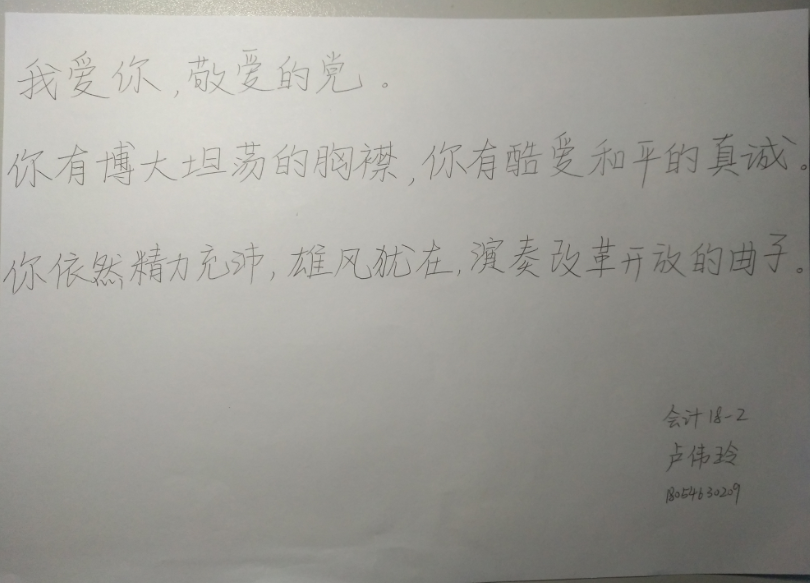 我爱你,敬爱的党。
你有博大坦荡的胸襟,你有酷爱和平的真诚。
你依然精力充沛,雄风犹在,演奏改革开放的曲子。
会计18-2
卢伟玲
18054630209